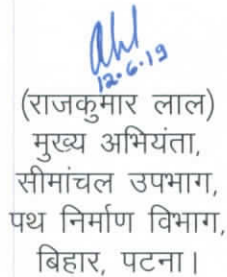 12.6.19
(राजकुमार लाल)
मुख्य अभियंता,
सीमांचल उपभाग,
पथ निर्माण विभाग,
बिहार, पटना।